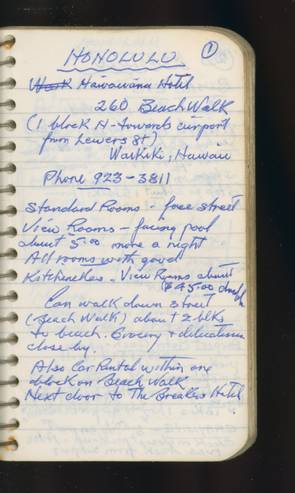 HONOLULU
1
Hawaiiana Hotel
260 Beach Walk
(1 block N-towards airport
from Lewers St)
Waikiki, Hawaii
Phone 923-3811
Standard Rooms - face street
View Rooms - facing pool
about 5.00 more a night
All rooms with good
Kitchenettes - View Rooms about
$45.00
Can walk down street
(Beach Walk) about 2 blks
to beach. Grocery + delicatessen
close by.
Also Car Rental within one
block on Beach Walk
Next door to The Breakers Hotel